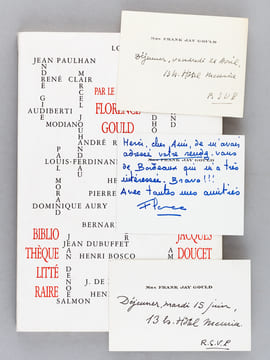 LO
JEAN PAULHAN
RENÉ CLAIR
PAR LE
AUDIBERTI
FLORENCE
MODIANO
GOULD
ANDRÉ
LOUIS-FERDINAN
PIERR
DOMINIQUE AURY
BERNAR
BIBLIO
JACQUES
JEAN DUBUFFET
THÈQUE
HENRI BOSCO
DOUCET
LITTÉ
J. DE
RAIRE
SALMON
PAUL MORAND
MARCEL
Mrs FRANK JAY GOULD
Déjeuner, vendredi 10 Avril,
13 h. Hôtel Meurice
R.S.V.P.
Merci, cher Ami, de m'avoir
adressé votre revue
Mrs FRANK JAY GOULD
de Bordeaux qui m'a très
intéressée. Bravo!!!
Avec toutes mes amitiés
Florence
Mrs FRANK JAY GOULD
Déjeuner, mardi 15 juin,
13 h. Hôtel Meurice
R.S.V.P.